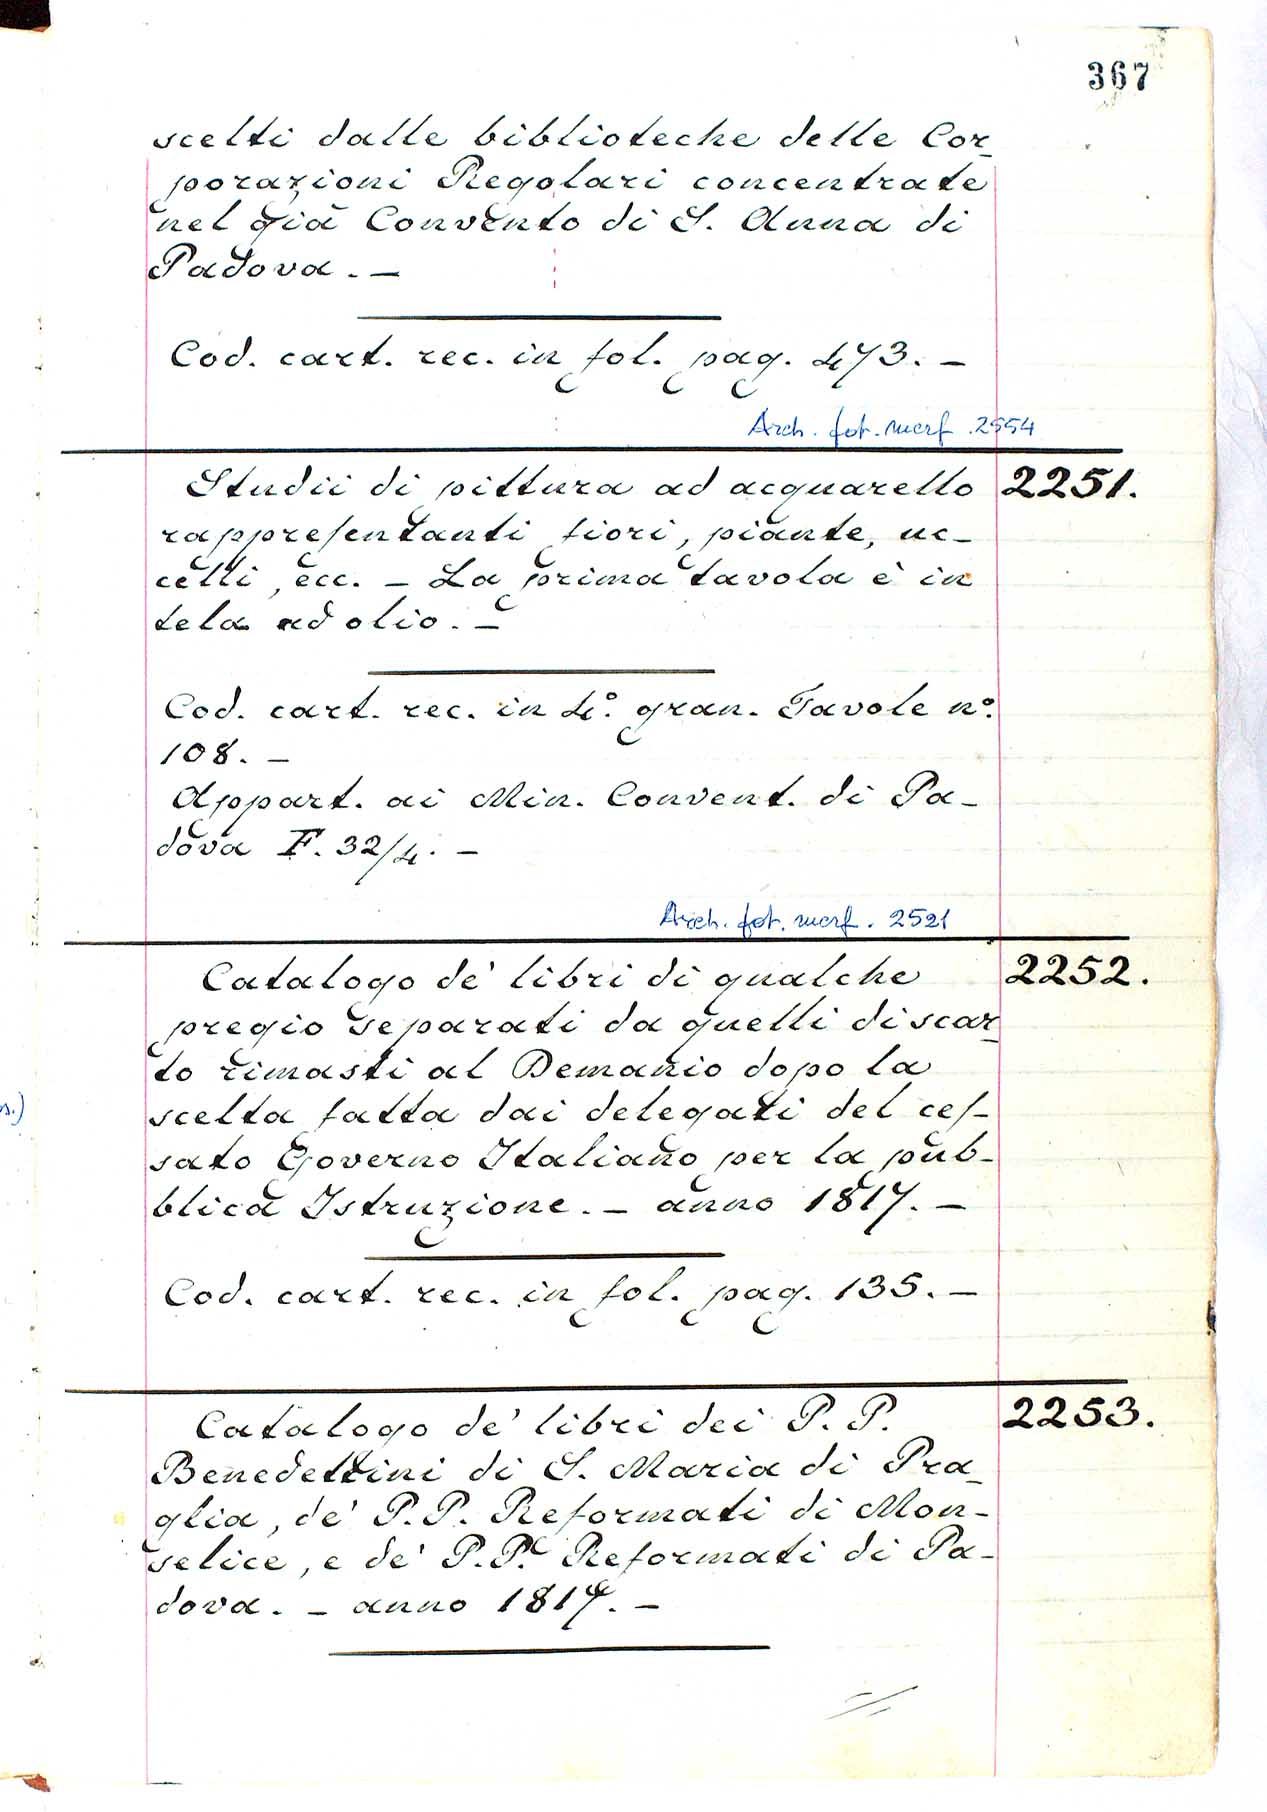 367
scelti dalle biblioteche delle Cor-
porazioni Regolari concentrate
nel già Convento di S. Anna di
Padova. –
Cod. cart. rec. in fol. pag. 473. –
Arch. fot. merf. 2554
Studii di pittura ad acquarello 2251.
rappresentanti fiori, piante, uc-
celli, ecc. – La prima tavola è in
tela ad olio. –
Cod. cart. rec. in 4.° gran. Tavole n.°
108. –
Appart. ai Min. Convent. di Pa-
dova F. 32/4. –
Arch. fot. merf. 2521
Catalogo de' libri di qualche 2252.
pregio separati da quelli di scar-
to rimasti al Demanio dopo la
scelta fatta dai delegati del ces-
sato Governo Italiano per la pub-
blica Istruzione. – anno 1817. –
Cod. cart. rec. in fol. pag. 135. –
Catalogo de' libri dei P. P. 2253.
Benedettini di S. Maria di Pra-
glia, de' P. P. Reformati di Mon-
selice, e de' P. P. Reformati di Pa-
dova. – anno 1817. –